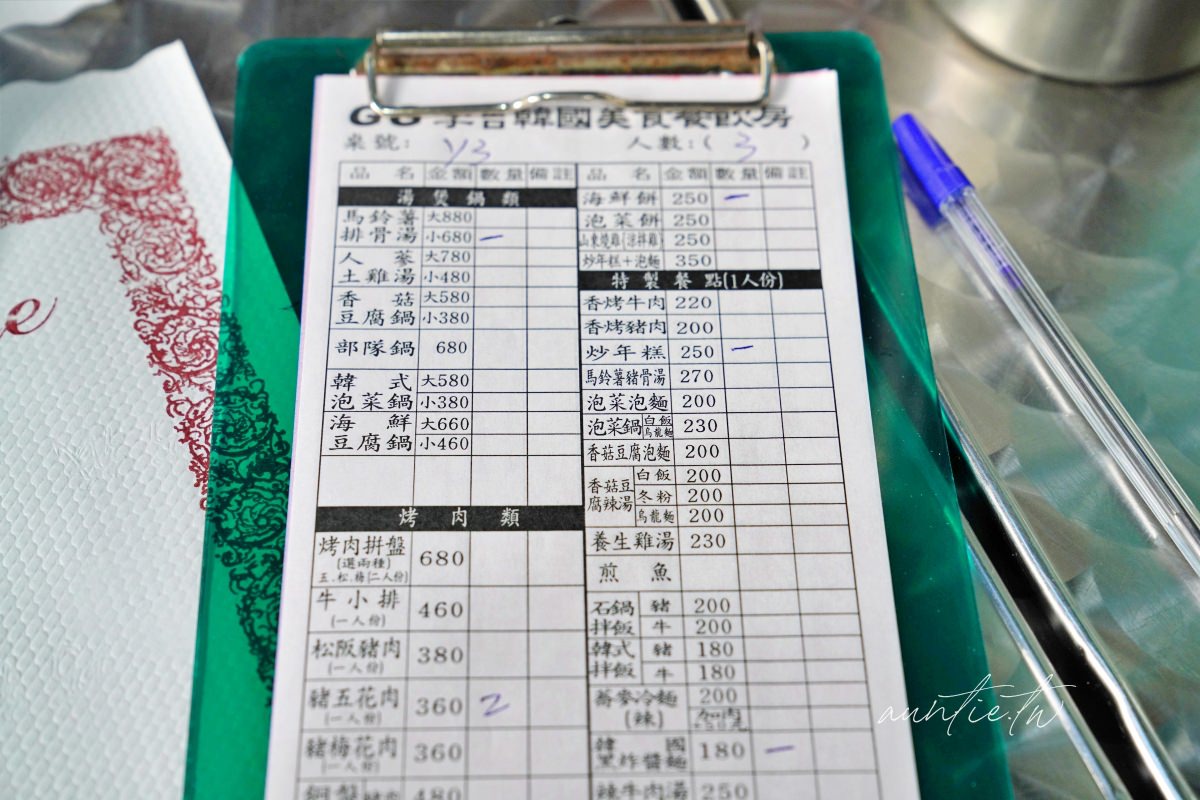 韓國美食餐飲房
桌號: Y3 人數:( 3 )
品名 金額 數量 備註
湯煲鍋類
馬鈴薯排骨湯 大880
小680 一
人蔘土雞湯 大780
小480
香菇豆腐鍋 大580
小380
部隊鍋 680
韓式泡菜鍋 大580
小380
海鮮豆腐鍋 大660
小460
烤肉類
烤肉拼盤 (選兩種) 五.松.梅(二人份) 680
牛小排 (一人份) 460
松阪豬肉 (一人份) 380
豬五花肉 (一人份) 360 2
豬梅花肉 (一人份) 360
480
品名 金額 數量 備註
海鮮餅 250 一
泡菜餅 250
山東燒雞(涼拌雞) 250
炒年糕+泡麵 350
特製餐點(1人份)
香烤牛肉 220
香烤豬肉 200
炒年糕 250 一
馬鈴薯豬骨湯 270
泡菜泡麵 200
泡菜鍋 白飯 烏龍麵 230
香菇豆腐泡麵 200
香菇豆腐辣湯 白飯 200
冬粉 200
烏龍麵 200
養生雞湯 230
煎魚
石鍋拌飯 豬 200
牛 200
韓式拌飯 豬 180
牛 180
蕎麥冷麵(辣) 200
韓國黑炸醬麵 180 一
辣牛肉湯 250
e
auntie.tw